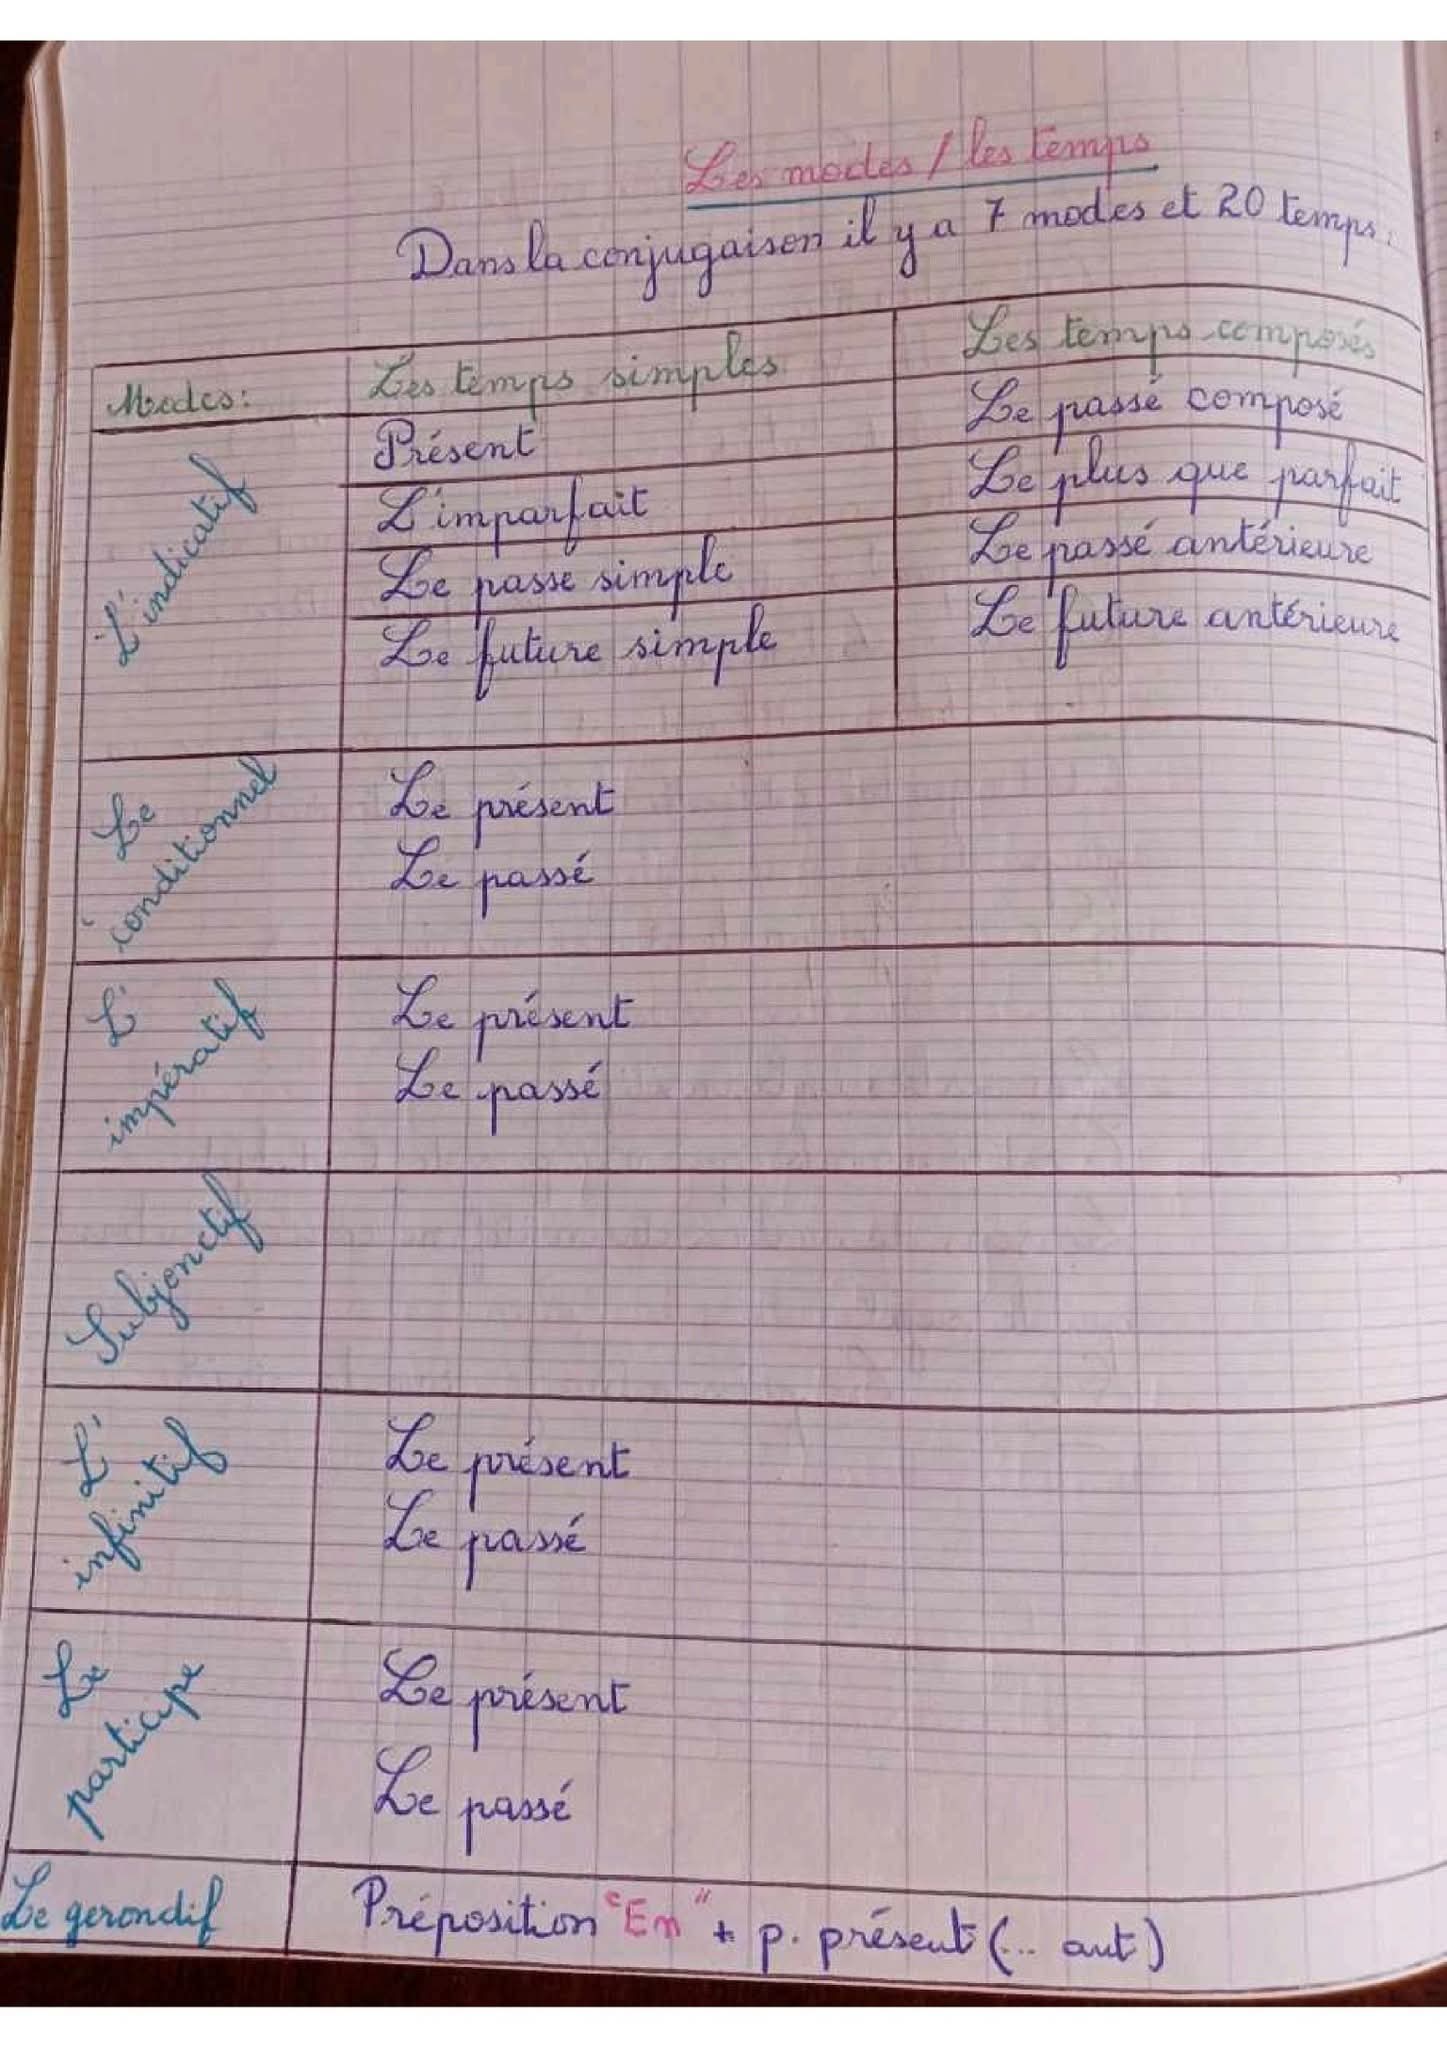 Les modes / les temps
Dans la conjugaison il y a 7 modes et 20 temps.
Modes: Les temps simples Les temps composés
L'indicatif
Présent Le passé composé
L'imparfait Le plus que parfait
Le passe simple Le passé antérieure
Le future simple Le future antérieure
Le
conditionnel
Le présent
Le passé
L'
impératif
Le présent
Le passé
Subjenctif
L'
infinitif
Le présent
Le passé
Le
participe
Le présent
Le passé
Le gerondif Préposition "En" + p. présent (... ant)